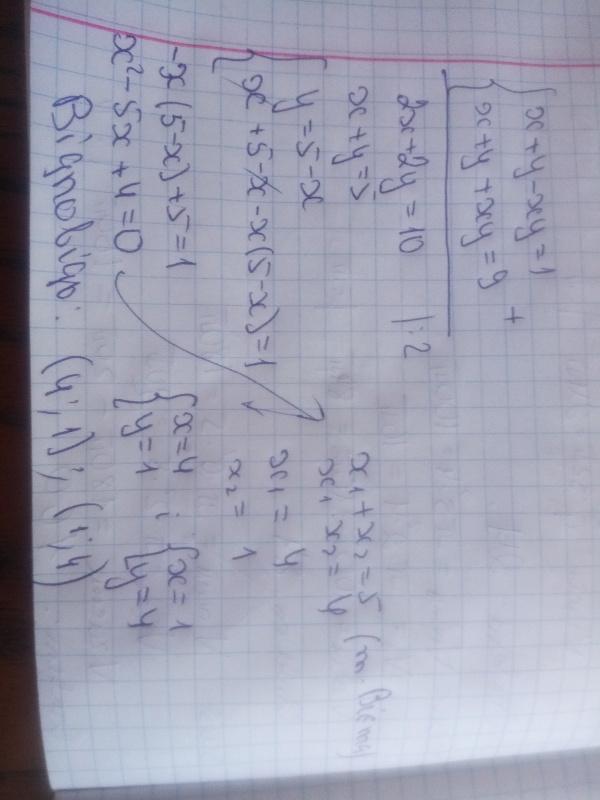 { x + y - xy = 1
{ x + y + xy = 9 +
2x + 2y = 10 |:2
x + y = 5
{ y = 5 - x
{ x + 5 - x - x(5 - x) = 1
-x(5-x)+5=1
x² - 5x + 4 = 0
x₁ + x₂ = 5 (т. Вієта)
x₁ x₂ = 4
x₁ = 4
x₂ = 1
{ x = 4 ; { x = 1
{ y = 1 { y = 4
Відповідь: (4; 1); (1; 4)